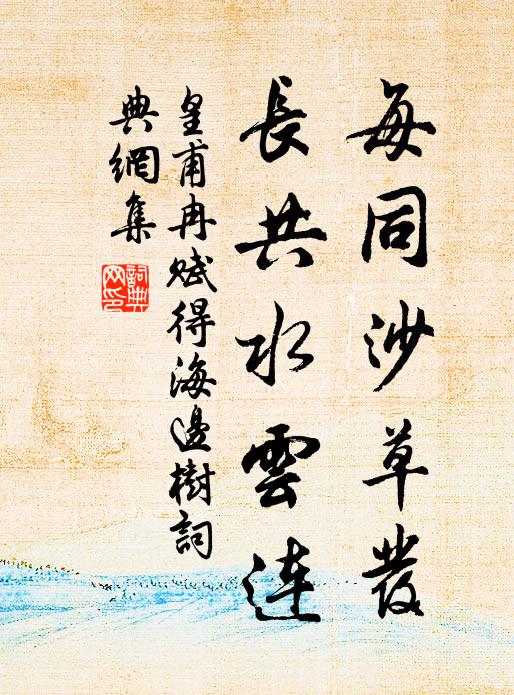 每同沙草發
長共水雲連
皇甫冉賦得海邊樹詞
典網集
詞典
网印